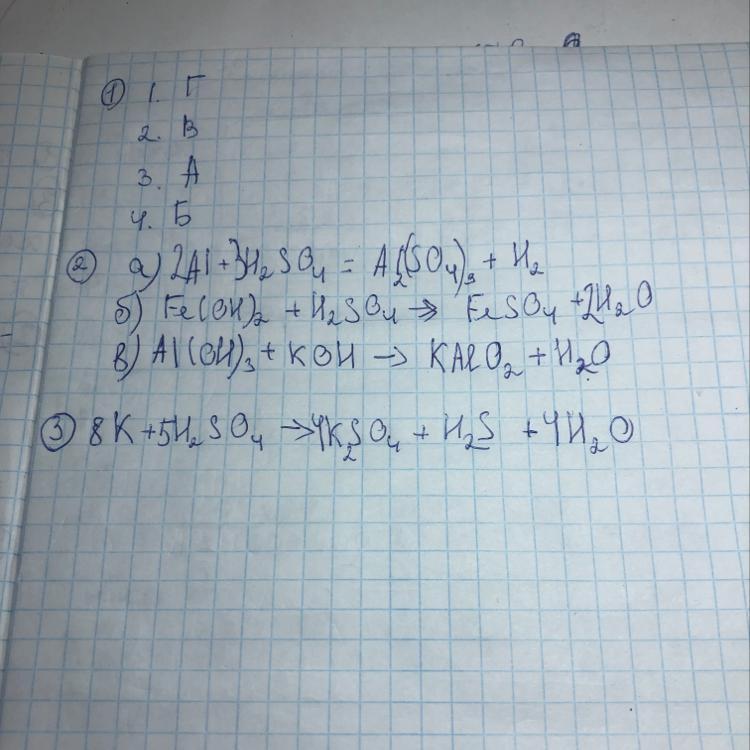 ① 1. Г
2. В
3. А
4. Б
② а) 2Al + 3H₂SO₄ = Al₂(SO₄)₃ + H₂
б) Fe(OH)₂ + H₂SO₄ → FeSO₄ + 2H₂O
в) Al(OH)₃ + KOH → KAlO₂ + H₂O
③ 8K + 5H₂SO₄ → 4K₂SO₄ + H₂S + 4H₂O